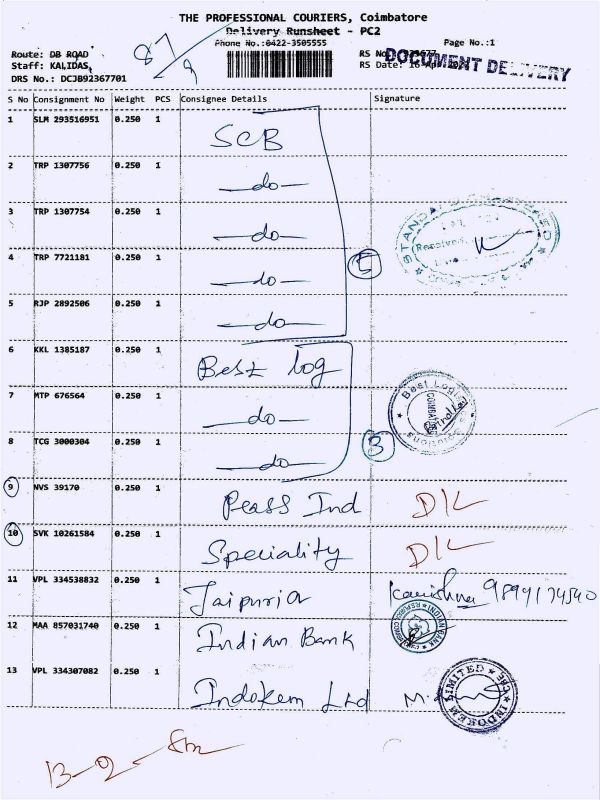 THE PROFESSIONAL COURIERS, Coimbatore
Delivery Runsheet - PC2
Phone No.:0422-3505555
Page No.:1
87/9
Route: DB ROAD
Staff: KALIDAS,
DRS No.: DCJB92367701
RS No
RS Date: 16
DOCUMENT DELIVERY
S No Consignment No Weight PCS Consignee Details Signature
1 SLM 293516951 0.250 1 SCB
2 TRP 1307756 0.250 1 —do—
3 TRP 1307754 0.250 1 —do—
Received
4 TRP 7721181 0.250 1 —do—
5
5 RJP 2892506 0.250 1 —do—
6 KKL 1385187 0.250 1 Best log
7 MTP 676564 0.250 1 —do—
Best Logi
8 TCG 3000304 0.250 1 —do—
3
9 NVS 39170 0.250 1 Peass Ind D/L
10 SVK 10261584 0.250 1 Speciality D/L
11 VPL 334538832 0.250 1 Jaipuria
12 MAA 857031740 0.250 1 Indian Bank
13 VPL 334307082 0.250 1 Indokem Ltd M.
INDOKEM LIMITED CBE
13-2-